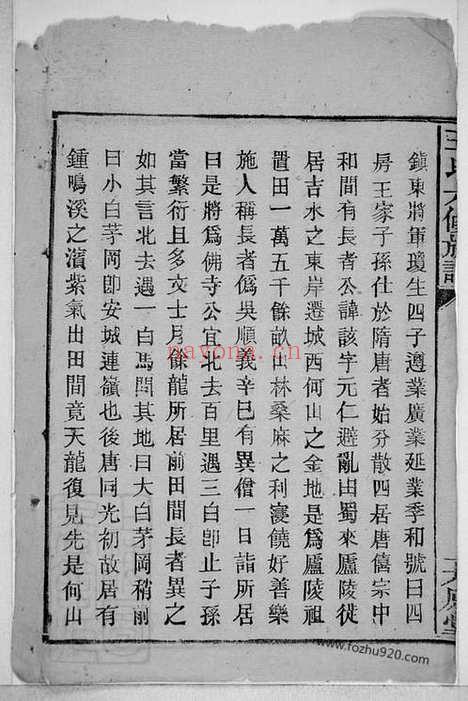 鎮東將軍瓊生四子遵業廣業延業季和號曰四
房王家子孫仕於隋唐者始分散四居唐僖宗中
和間有長者公諱該字元仁避亂由蜀來廬陵徙
居吉水之東岸遷城西何山之金地是爲廬陵祖
置田一萬五千餘畝山林桑麻之利寖饒好善樂
施人稱長者僞吳順義辛巳有異僧一日詣所居
曰是將爲佛寺公宜北去百里遇三白卽止子孫
當繁衍且多文士月餘龍所居前田間長者異之
如其言北去遇一白馬問其地曰大白茅岡稍前
曰小白茅岡卽安城連嶺也後唐同光初故居有
鍾鳴溪之濱紫氣出田間竟天龍復見先是何山
王氏大修族譜
太原堂
nayona.cn
www.fozhu920.com